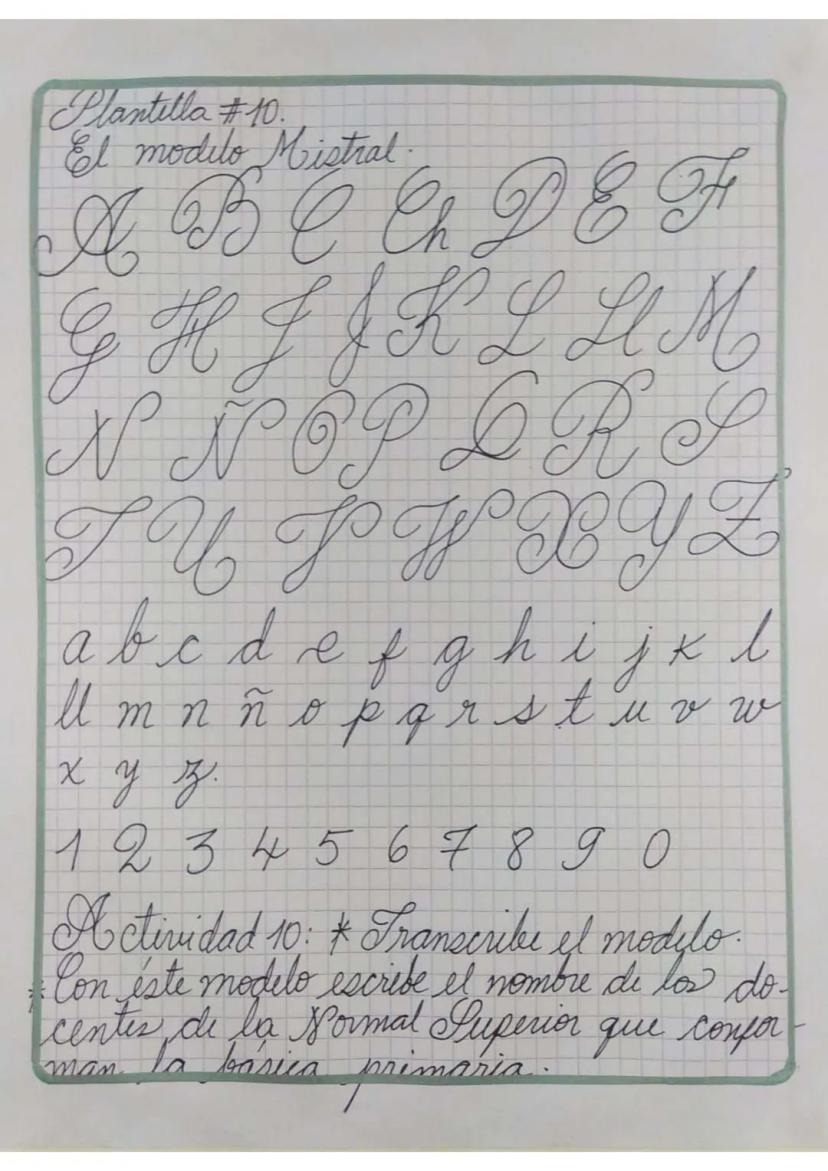 Plantilla #10.
El modelo Mistral.
A B C Ch D E F
G H I J K L Ll M
N Ñ O P Q R S
T U V W X Y Z
a b c d e f g h i j k l
ll m n ñ o p q r s t u v w
x y z.
1 2 3 4 5 6 7 8 9 0
Actividad 10: * Transcribe el modelo.
* Con éste modelo escribe el nombre de los do-
centes de la Normal Superior que confor-
man la básica primaria.